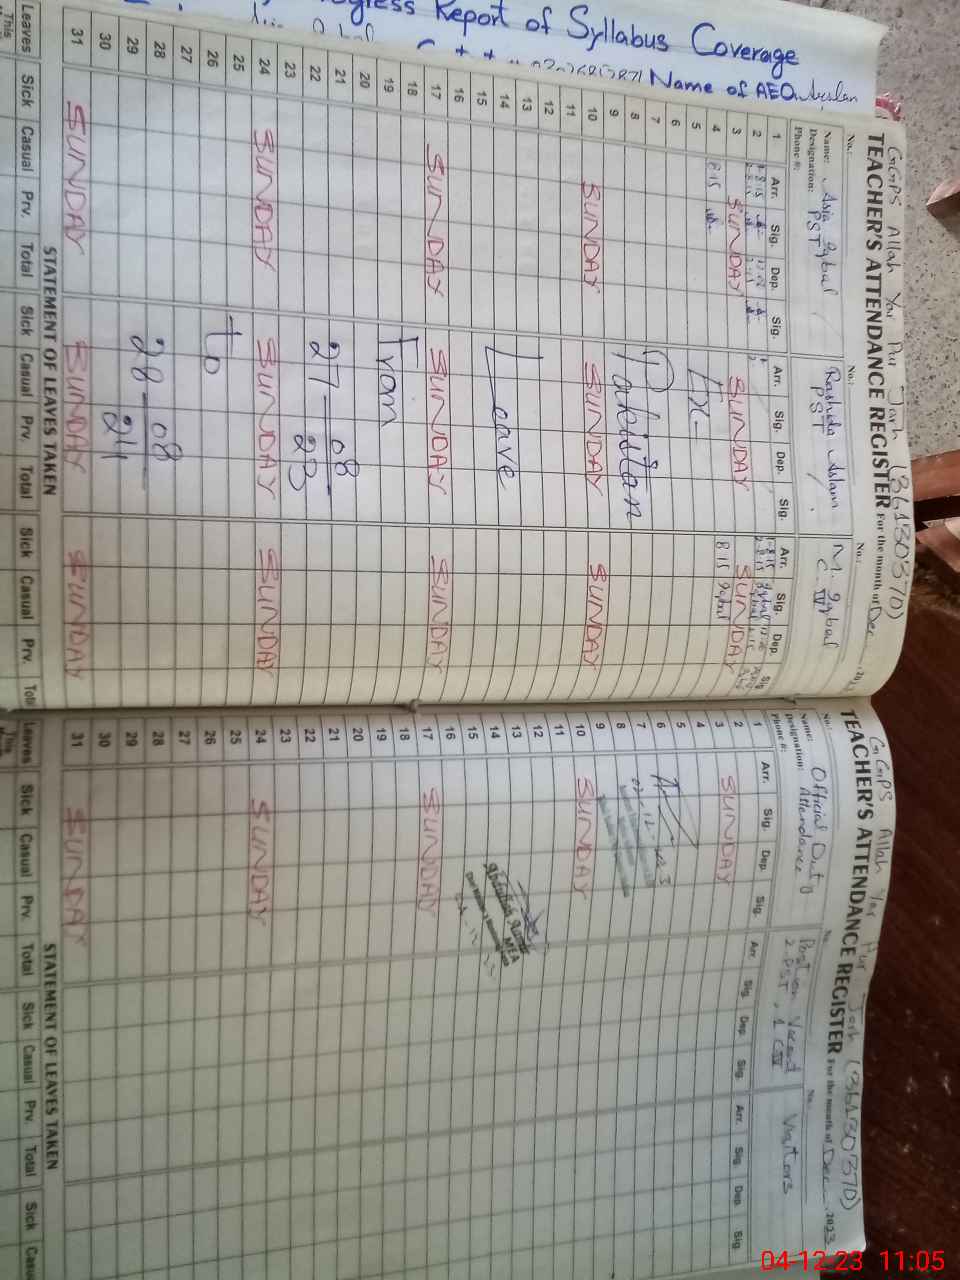 Progress Report of Syllabus Coverage
Name of AEO Arslan
GGPS Allah Yar Pur Jarh (36130370)
TEACHER'S ATTENDANCE REGISTER For the month of Dec 2023
No.: No.: No.:
Name: Asia Iqbal Rashida Aslam M. Iqbal
Designation: PST PST C-IV
Phone #:
Arr. Sig. Dep. Sig. Arr. Sig. Dep. Sig. Arr. Sig. Dep. Sig
1
2
3 SUNDAY SUNDAY SUNDAY
4 8:15 8:15 Iqbal
5 Ex-
6
7 Pakistan
8
9
10 SUNDAY SUNDAY SUNDAY
11
12
13
14 Leave
15
16
17 SUNDAY SUNDAY SUNDAY
18
19 From
20
21 27-08
22 23
23
24 SUNDAY SUNDAY SUNDAY
25
26 to
27
28 28-08
29 24
30
31 SUNDAY SUNDAY SUNDAY
STATEMENT OF LEAVES TAKEN
Leaves Sick Casual Prv. Total Sick Casual Prv. Total Sick Casual Prv.
This
GGPS Allah Yar Pur Jarh (36130370)
TEACHER'S ATTENDANCE REGISTER For the month of Dec 2023
No.: No. No.:
Name: Official Duty Position Vacant Visitors
Designation: Attendance 2-PST, 1 C-IV
Phone #:
Arr. Sig. Dep. Sig. Arr. Sig. Dep. Sig. Arr. Sig. Dep. Sig.
1
2
3 SUNDAY
4
5
6
7
8
9
10 SUNDAY
11
12
13 MEA
14
15
16
17 SUNDAY
18
19
20
21
22
23
24 SUNDAY
25
26
27
28
29
30
31 SUNDAY
STATEMENT OF LEAVES TAKEN
Leaves Sick Casual Prv. Total Sick Casual Prv. Total Sick
This
04-12-23 11:05